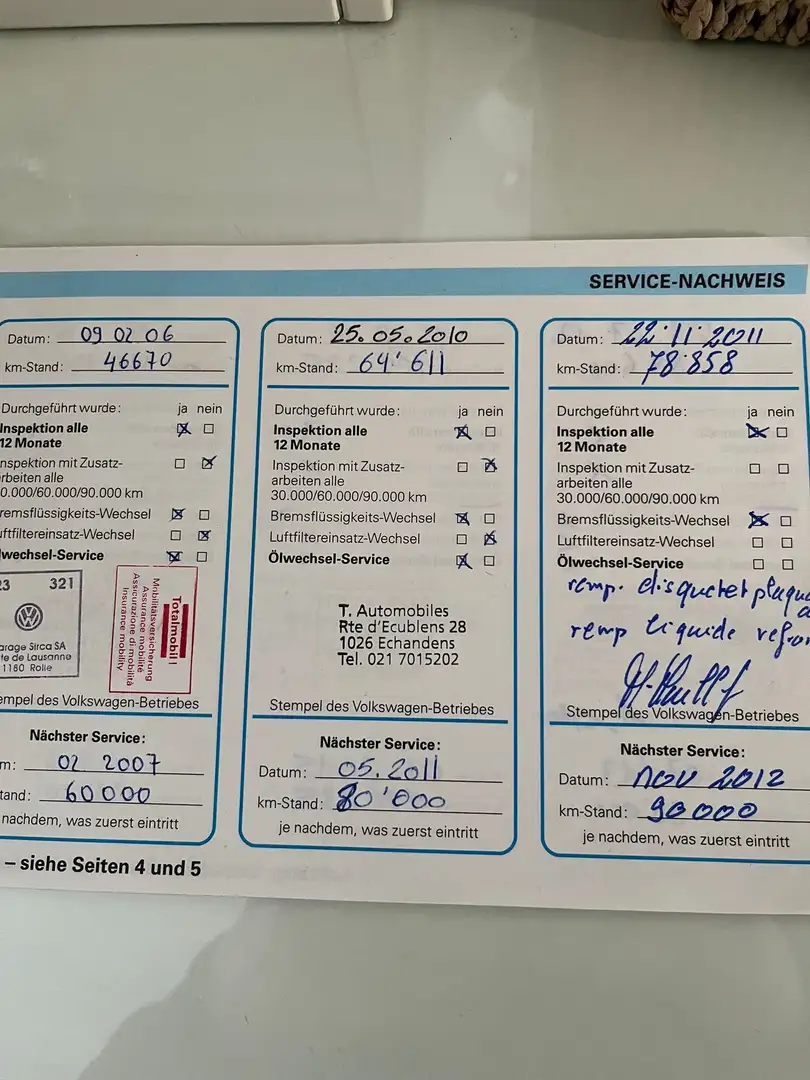 SERVICE-NACHWEIS
Datum: 09 02 06
km-Stand: 46670
Durchgeführt wurde: ja nein
Inspektion alle
12 Monate
nspektion mit Zusatz-
arbeiten alle
0.000/60.000/90.000 km
remsflüssigkeits-Wechsel
uftfiltereinsatz-Wechsel
lwechsel-Service
23 321
arage Sirca SA
te de Lausanne
1180 Rolle
Totalmobil!
Mobilitätsversicherung
Assurance mobilité
Assicurazione di mobilità
Insurance mobility
empel des Volkswagen-Betriebes
Nächster Service:
m: 02 2007
tand: 60000
nachdem, was zuerst eintritt
– siehe Seiten 4 und 5
Datum: 25.05.2010
km-Stand: 64'611
Durchgeführt wurde: ja nein
Inspektion alle
12 Monate
Inspektion mit Zusatz-
arbeiten alle
30.000/60.000/90.000 km
Bremsflüssigkeits-Wechsel
Luftfiltereinsatz-Wechsel
Ölwechsel-Service
T. Automobiles
Rte d'Ecublens 28
1026 Echandens
Tel. 021 7015202
Stempel des Volkswagen-Betriebes
Nächster Service:
Datum: 05.2011
km-Stand: 80'000
je nachdem, was zuerst eintritt
Datum: 22.11.2011
km-Stand: 78'858
Durchgeführt wurde: ja nein
Inspektion alle
12 Monate
Inspektion mit Zusatz-
arbeiten alle
30.000/60.000/90.000 km
Bremsflüssigkeits-Wechsel
Luftfiltereinsatz-Wechsel
Ölwechsel-Service
remp. disquetet plaque
remp liquide refro
Stempel des Volkswagen-Betriebes
Nächster Service:
Datum: nov 2012
km-Stand: 90000
je nachdem, was zuerst eintritt